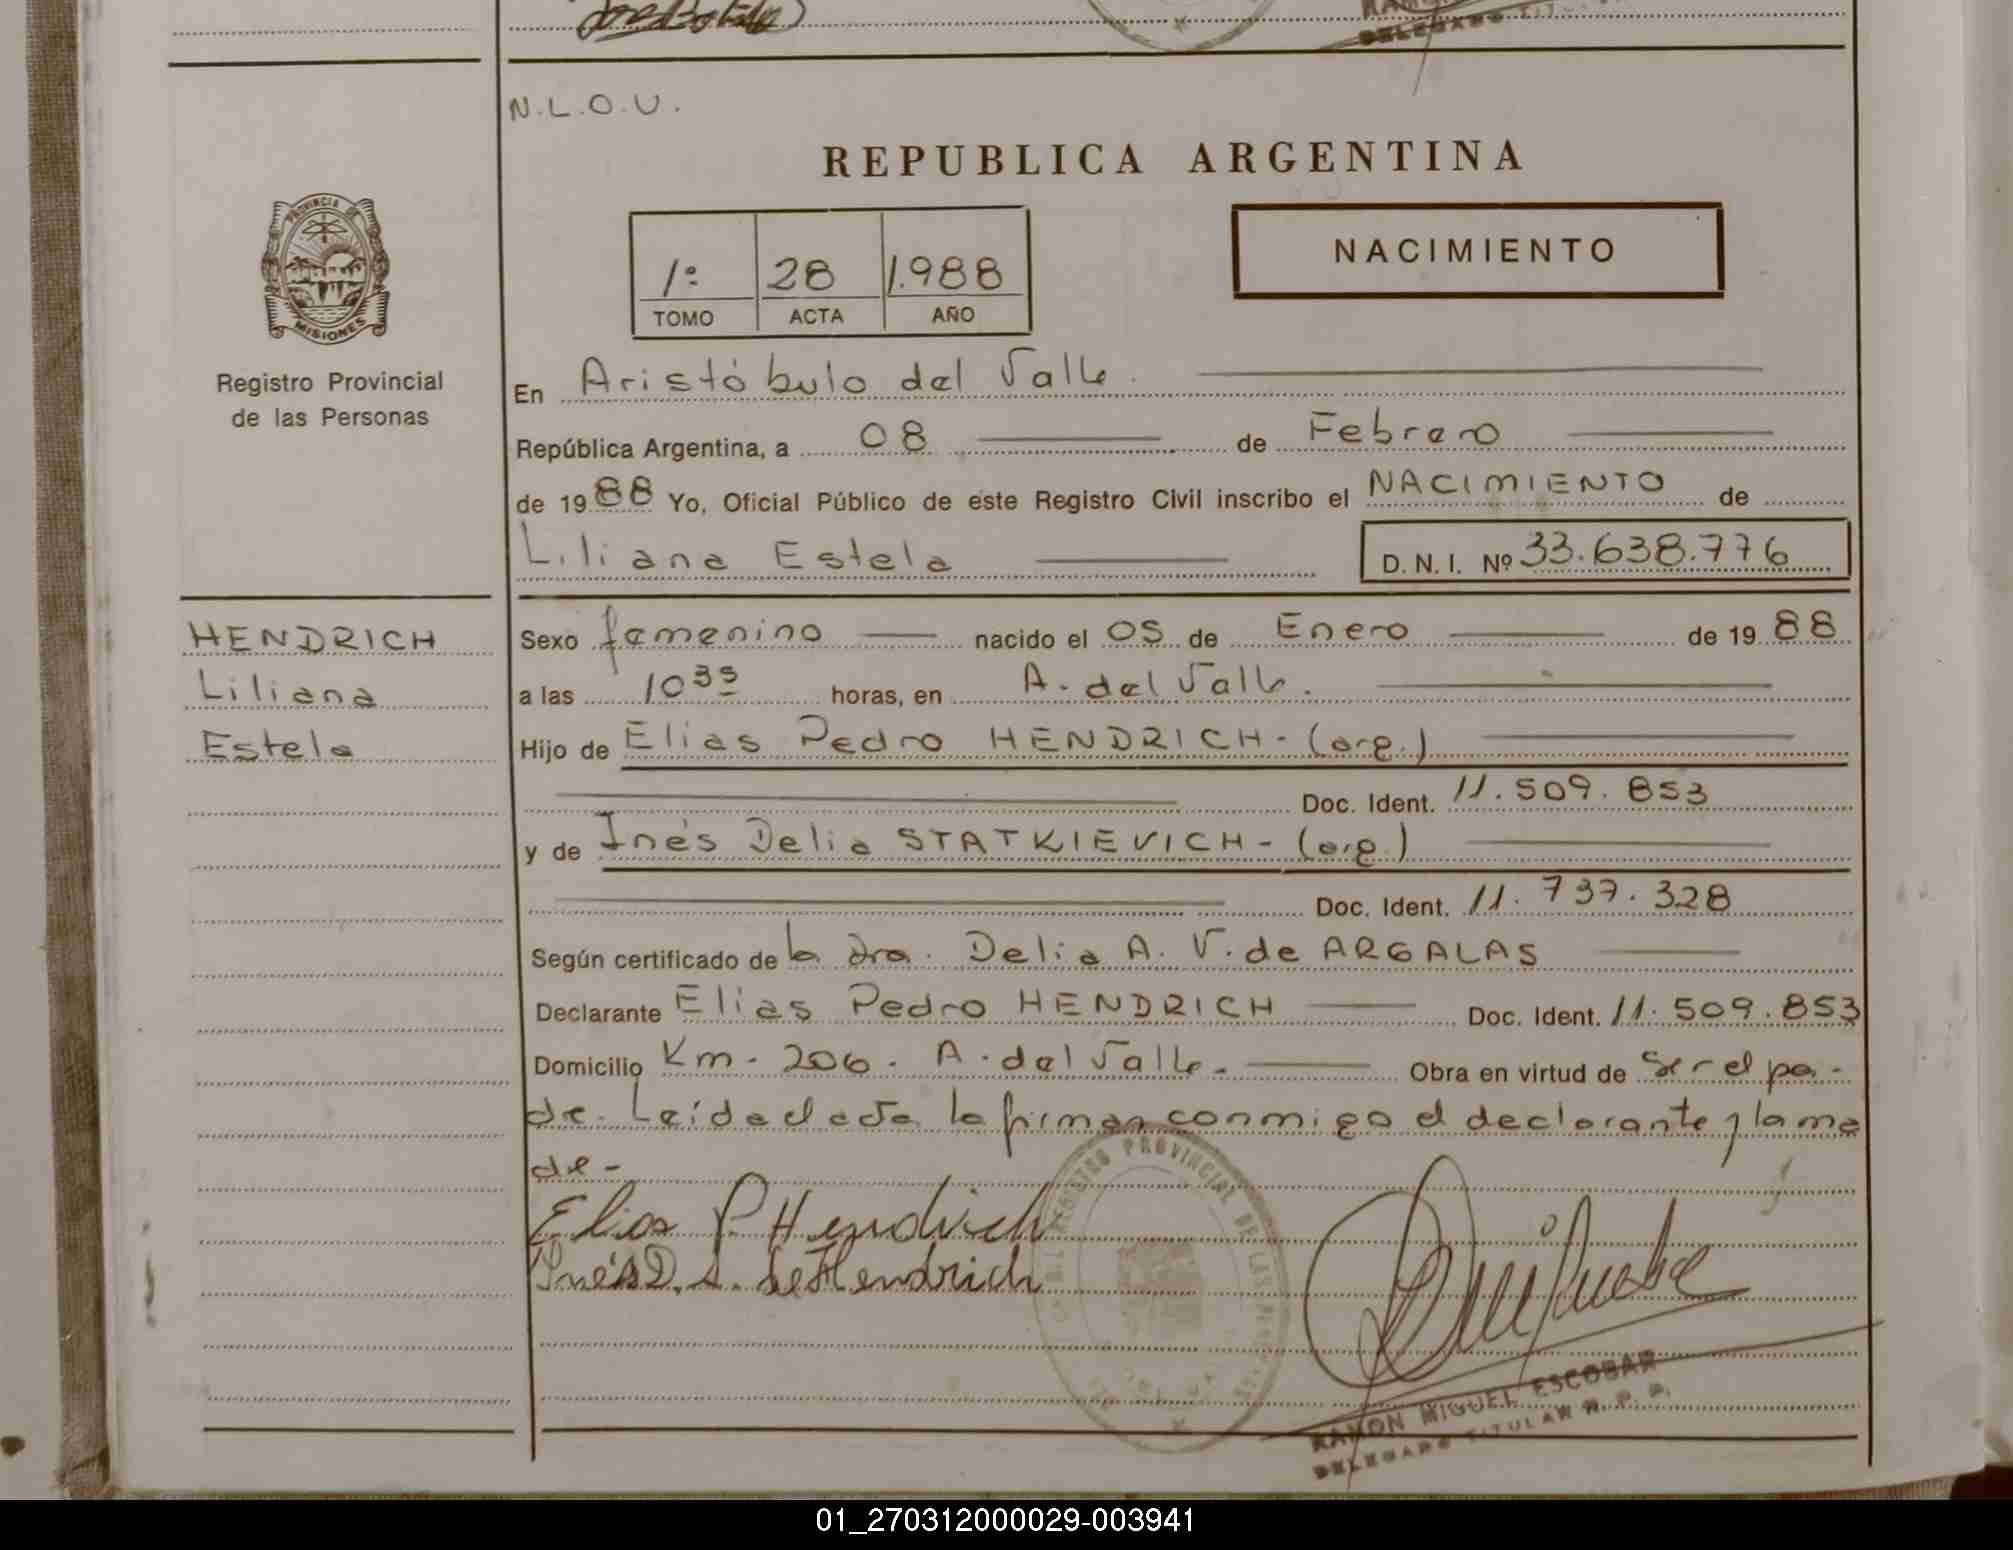 N.L.O.U.
REPUBLICA ARGENTINA
PROVINCIA DE
MISIONES
Registro Provincial
de las Personas
1º 28 1.988
TOMO ACTA AÑO
NACIMIENTO
En Aristóbulo del Valle.
República Argentina, a 08 de Febrero
de 1988 Yo, Oficial Público de este Registro Civil inscribo el NACIMIENTO de
Liliana Estela D. N. I. Nº 33.638.776
HENDRICH
Liliana
Estela
Sexo femenino nacido el 05 de Enero de 1988
a las 10 35 horas, en A. del Valle.
Hijo de Elias Pedro HENDRICH - (arg.)
Doc. Ident. 11.509.853
y de Inés Delia STATKIEVICH - (arg.)
Doc. Ident. 11.737.328
Según certificado de la Dra. Delia A. V. de ARGALAS
Declarante Elias Pedro HENDRICH Doc. Ident. 11.509.853
Domicilio Km. 206. A. del Valle. Obra en virtud de ser el pa-
de. Leída el acta la firman conmigo el declarante y la ma
de-
Elias P. Hendrich
Inés D. S. de Hendrich
REGISTRO PROVINCIAL DE LAS
RAMON MIGUEL ESCOBAR
DELEGADO TITULAR R. P. P.
01_270312000029-003941